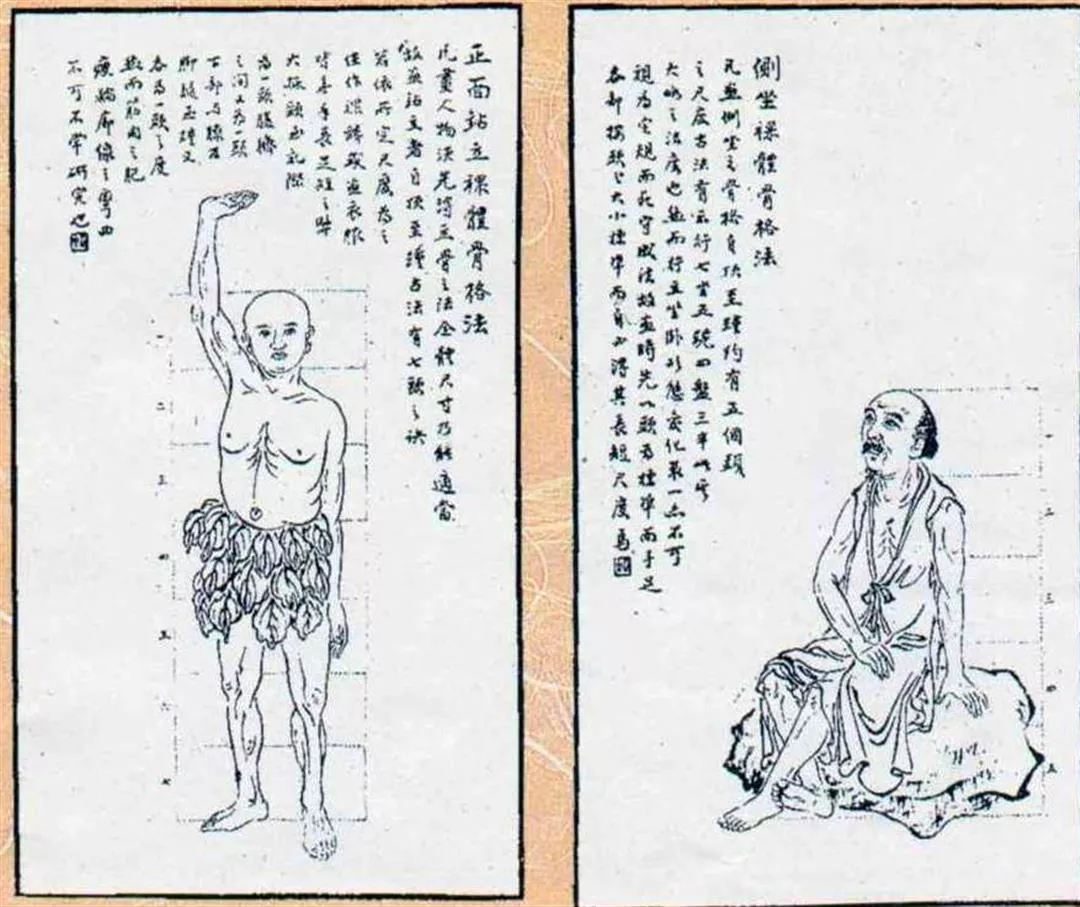 正面站立裸體骨格法
凡畫人物須先將立骨之法全體尺寸乃能適當
故畫站立者自頂至踵古法有七頭之訣
若依所定尺度為之
作裸體或畫衣服
時無手長足短之弊
大概頭至乳際
為一頭腹臍
之間又為一頭
下部与膝
脚腿至踵又
各為一頭之度
然而筋肉之肥
瘦輪廓線之彎曲
不可不常研究也
一
二
三
四
五
六
七
側坐裸體骨格法
凡畫側坐之骨格自頂至踵約有五個頭
之尺度古法有云行七坐五盤三半此
大略之法度也然而行立坐卧形態变化不可
視為定規而死守成法故畫時先以頭為標準而手足
各部按頭之大小標準而自必得其長短尺度焉
一
二
三
四
五